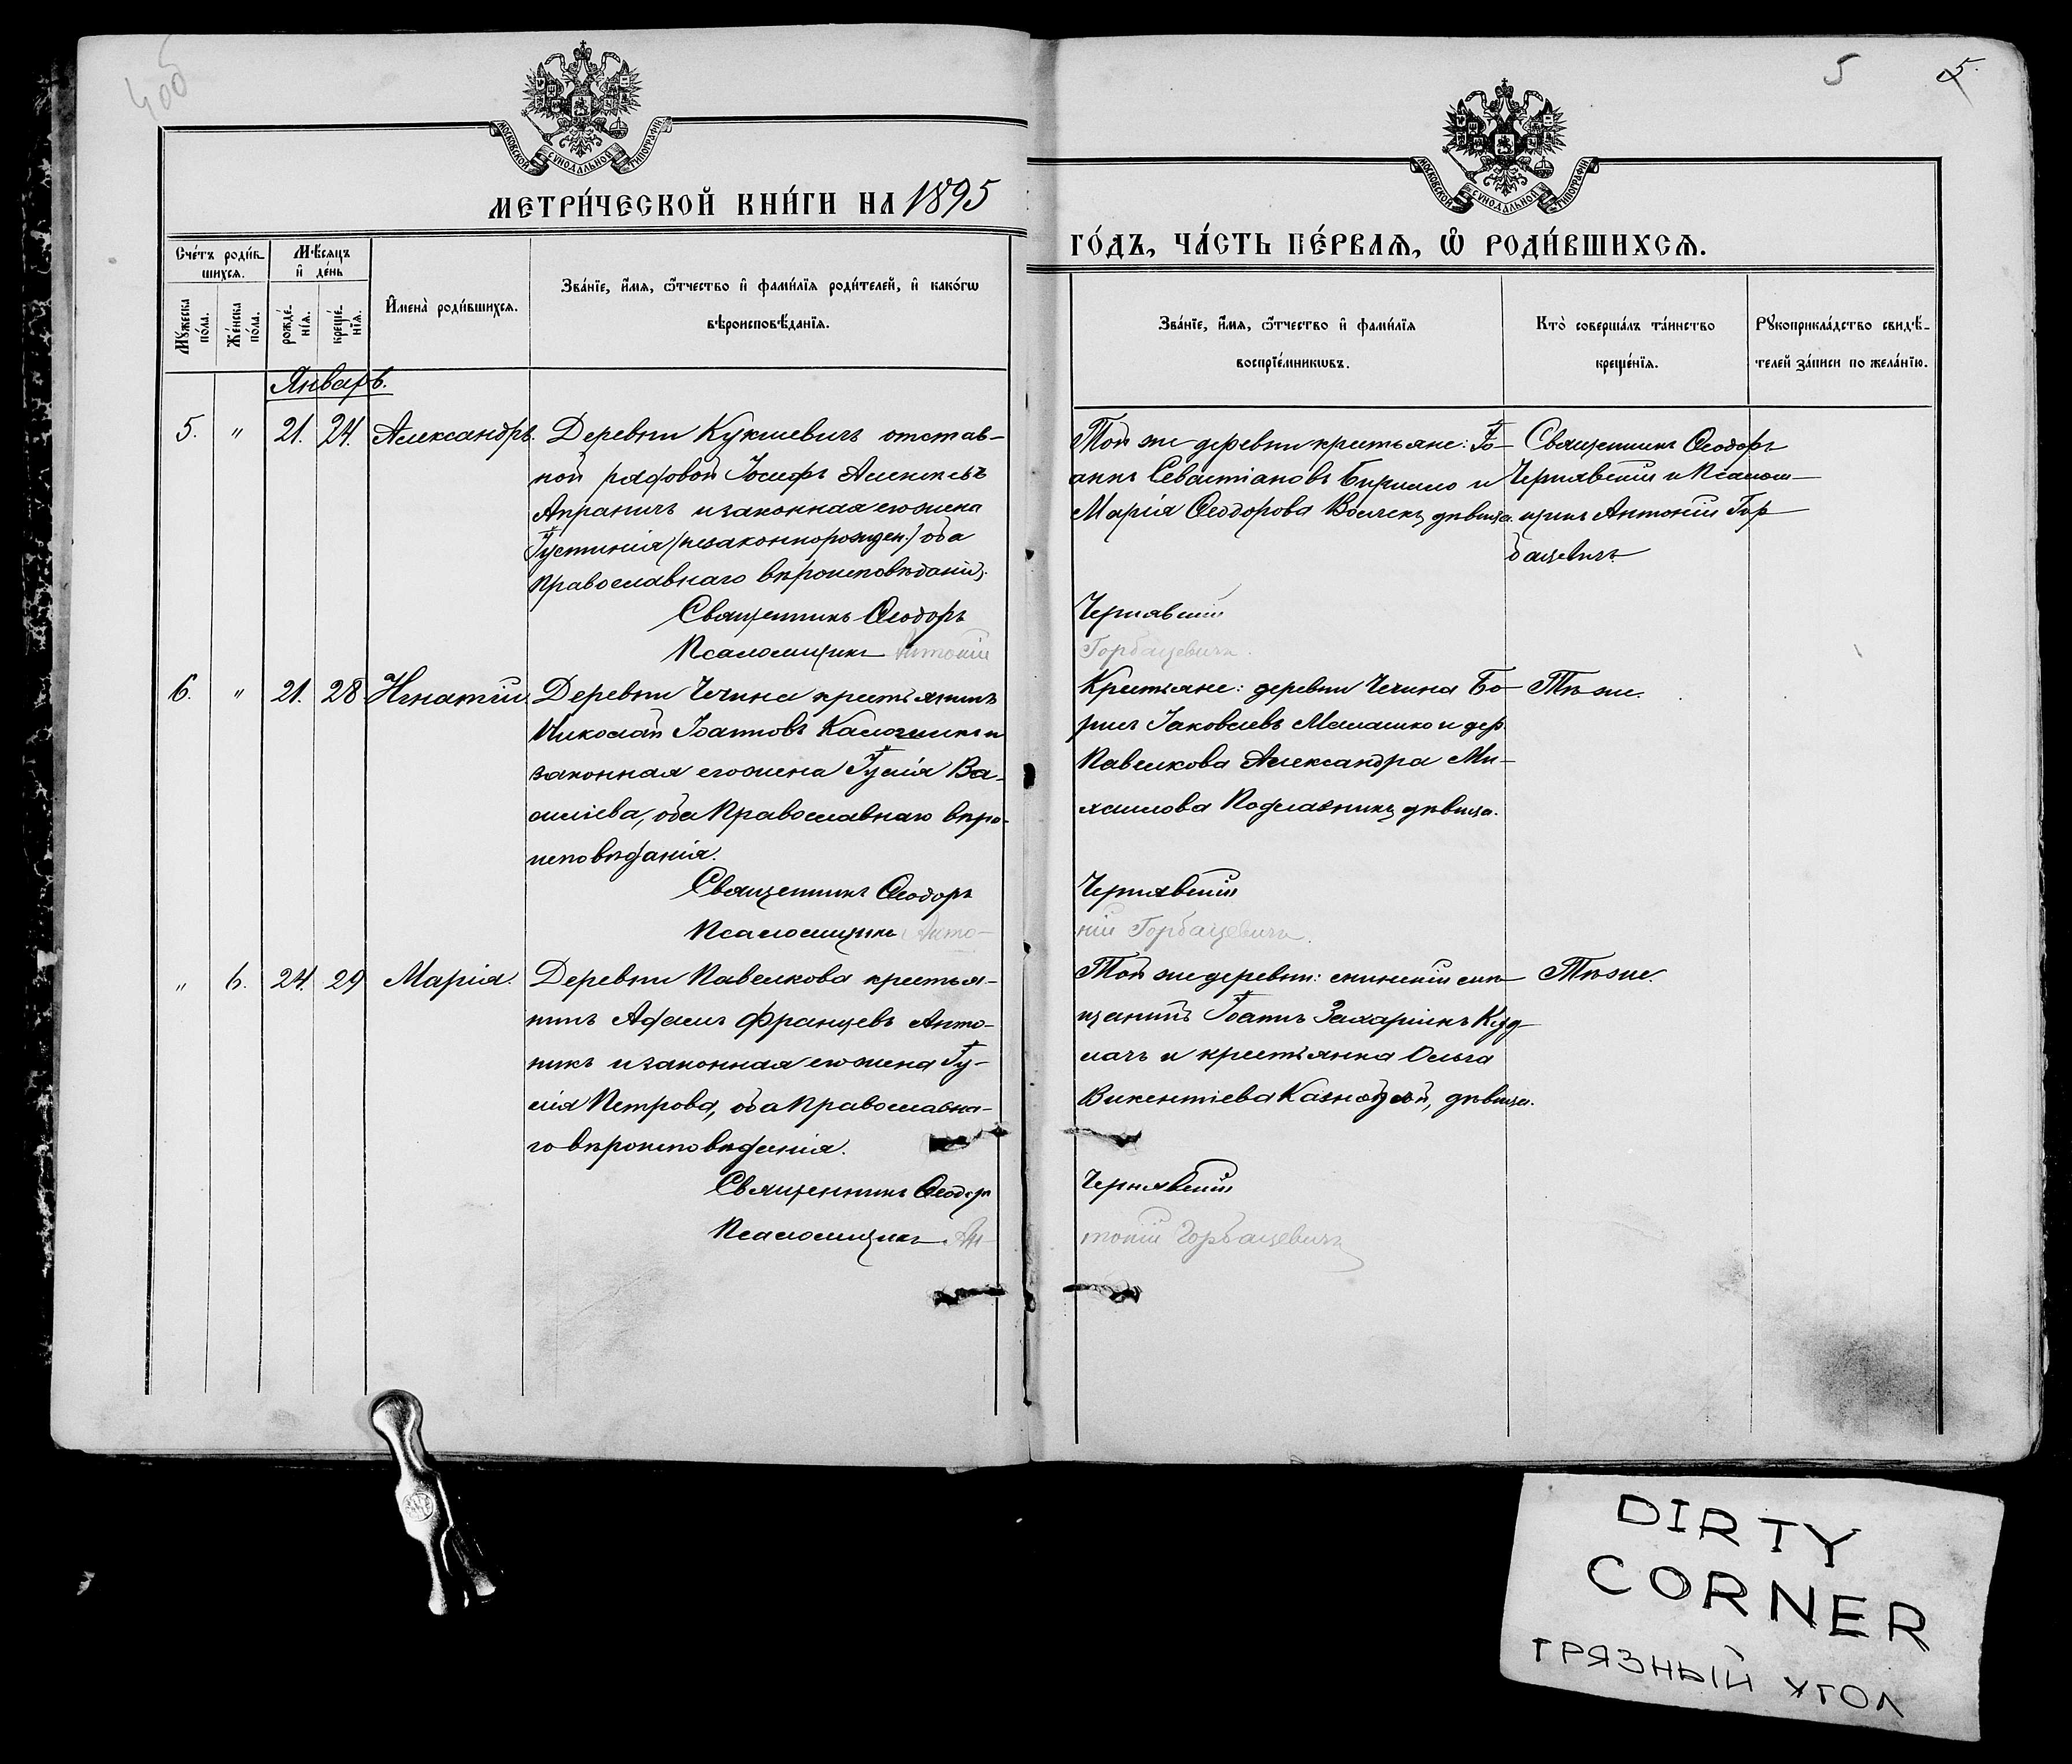 406
МОСКОВСКОЙ СѴНОДАЛЬНОЙ ТИПОГРАФІИ
МЕТРИ́ЧЕСКОЙ КНИ́ГИ НА 1895
Сче́тъ роди́в-
шихсѧ.
Мѣ́сяцъ
и҆ де́нь
Мꙋ́жеска
по́ла.
Же́нска
по́ла.
рожде́-
нїѧ.
креще́-
нїѧ.
И҆мена̀ роди́вшихсѧ.
Зва́нїе, и҆́мѧ, ѻ҆́тчество и҆ фами́лїѧ роди́телей, и҆ како́гѡ
вѣроисповѣ́данїѧ.
Январь.
5. " 21. 24. Александръ.
Деревни Кукшевичъ отстав-
ной рядовой Іосифъ Алексѣевъ
Апраничъ и законная его жена
Іустинія (незаконнорожден.) оба
православнаго вѣроисповѣданія.
Священникъ Ѳеодоръ
Псаломщикъ Антоній
6. " 21. 28 Игнатій.
Деревни Чечина крестьянинъ
Николай Іоанновъ
законная его жена Іулія Ва-
силіева, оба Православнаго вѣро-
исповѣданія.
Священникъ Ѳеодоръ
Псаломщикъ Анто-
" 6. 24. 29 Марія.
Деревни Павелкова крестья-
нинъ Адамъ Францевъ Анто-
никъ и законная его жена Іу-
лія Петрова, оба Православна-
го вѣроисповѣданія.
Священникъ Ѳеодоръ
Псаломщикъ Ан-
5 5.
МОСКОВСКОЙ СѴНОДАЛЬНОЙ ТИПОГРАФІИ
ГО́ДЪ, ЧА́СТЬ ПЕ́РВАѦ, Ѡ҆ РОДИ́ВШИХСѦ.
Зва́нїе, и҆́мѧ, ѻ҆́тчество и҆ фами́лїѧ
воспрїе́мникѡвъ.
Кто̀ соверша́лъ та́инство
креще́нїѧ.
Рꙋкоприкла́дство свидѣ́-
телей за́писи по жела́нїю.
Той же деревни крестьяне: Іо-
аннъ Севастіановъ Бирилло и
Марія Ѳеодорова Волчекъ, дѣвица.
Священникъ Ѳеодоръ
Чернявскій и Псалом-
щикъ Антоній Гор
бацевичъ.
Чернявскій
Горбацевичъ.
Крестьяне: деревни Чечина Бо-
рисъ Іаковлевъ Малашко и дер.
Павелкова Александра Ми-
хаилова дѣвица.
Тѣ же.
Чернявскій
ній Горбацевичъ.
Той же деревни: мѣ-
щанинъ Іоаннъ Куд
лачъ и крестьянка Ольга
Викентіева дѣвица.
Тѣ же.
Чернявскій
тоній Горбацевичъ
DIRTY
CORNER
ГРЯЗНЫЙ УГОЛ